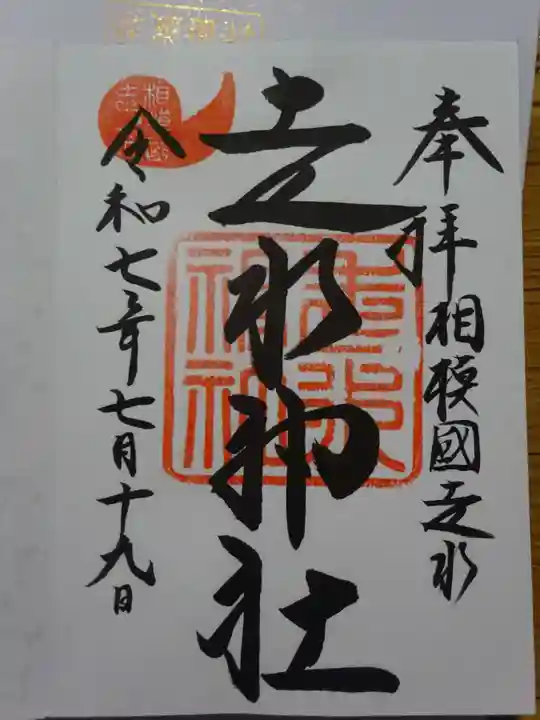 奉拝 相模國走水
走水神社
令和七年七月十九日
走水神社